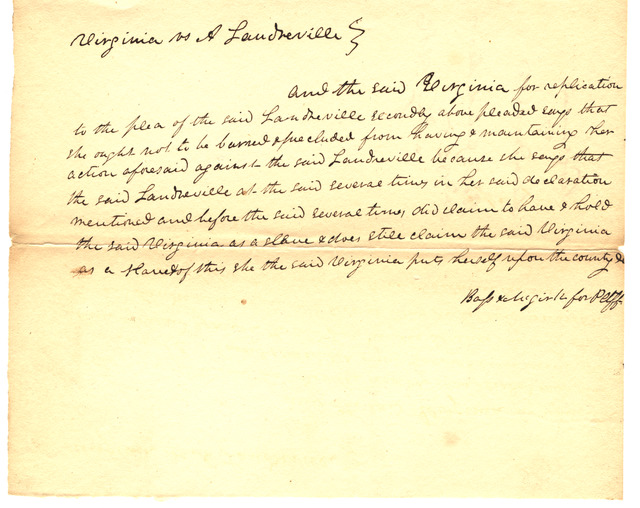 Virginia vs A Landreville }
And the said Virginia for replication
to the plea of the said Landreville secondly above pleaded says that
she ought not to be barred & precluded from having & maintaining her
action aforesaid against the said Landreville because she says that
the said Landreville at the said several times in her said declaration
mentioned and before the said several times did claim to have & hold
the said Virginia as a slave & does still claim the said Virginia
as a slave & of this she the said Virginia puts herself upon the county &
for Pltff